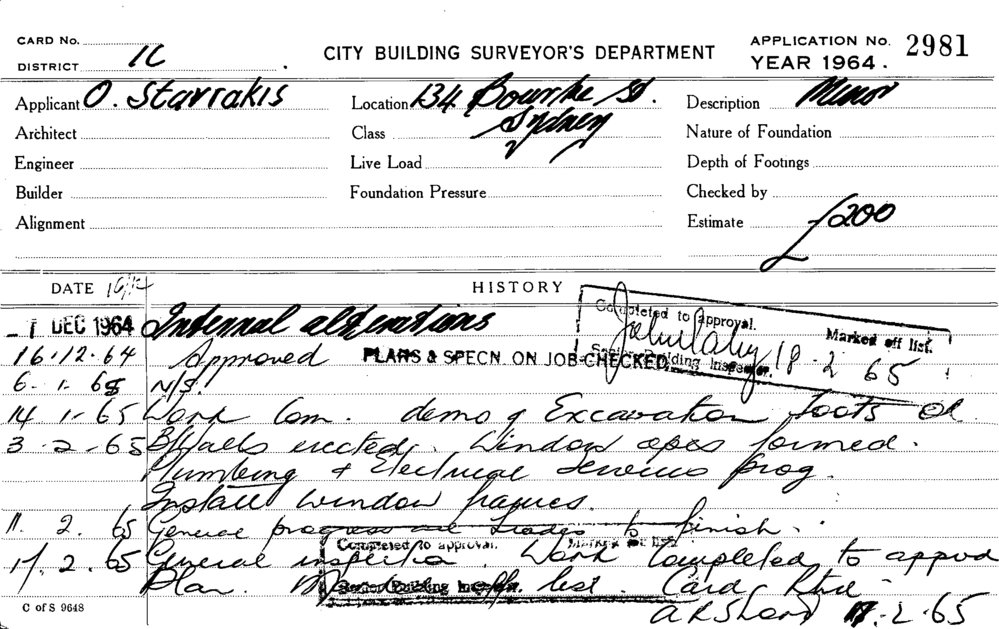 CARD No.
DISTRICT 1C
CITY BUILDING SURVEYOR'S DEPARTMENT
APPLICATION No. 2981
YEAR 1964.
Applicant O. Stavrakis
Location 134 Bourke St.
Sydney
Description Minor
Architect
Class
Nature of Foundation
Engineer
Live Load
Depth of Footings
Builder
Foundation Pressure
Checked by
Alignment
Estimate £200
DATE 16/12
HISTORY
- 1 DEC 1964 Internal alterations
Completed to approval.
Marked off list.
Senior Building Inspector.
18 2 65
16.12.64 Approved PLANS & SPECN. ON JOB CHECKED
6. 1. 65 N/S.
14 1-65 Work Com. demo & Excavation foots
3-2-65 B/Walls erected. Window opes formed.
Plumbing & Electrical Services prog.
Install window frames.
11. 2. 65 General progress Trades to finish.
Completed to approval. Marked off list.
17. 2. 65 General inspection. Work Completed to appvd
Plan. off list. Card Rtd
Senior Building Inspector.
17-2-65
C of S 9648